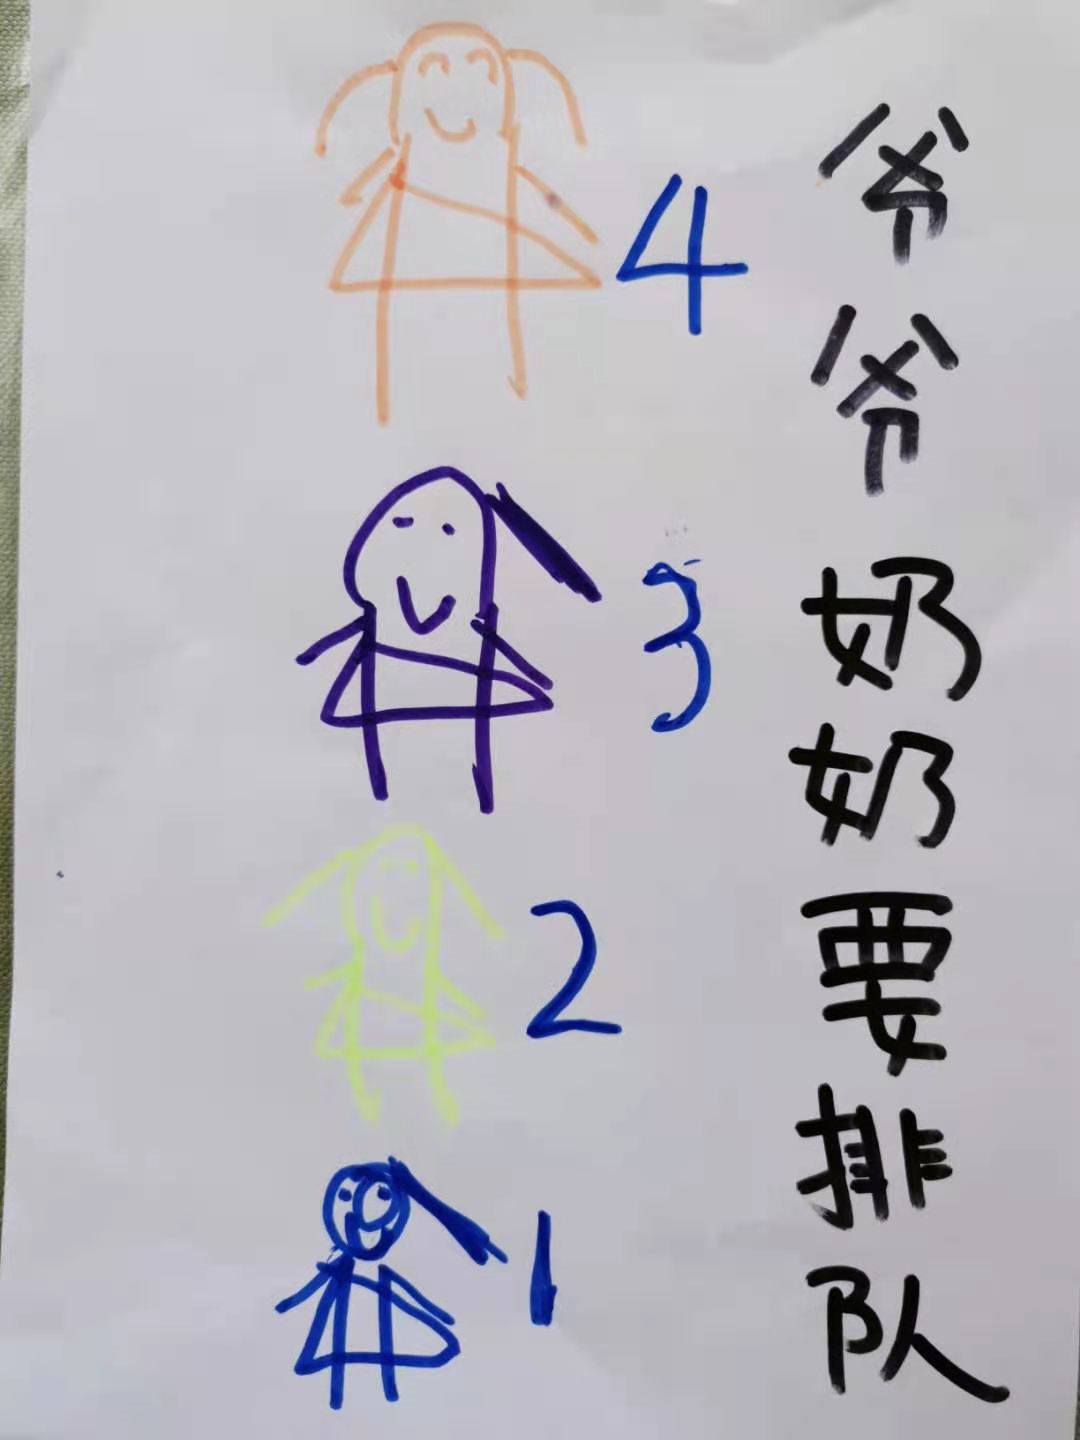 爷爷奶奶要排队
4
3
2
1